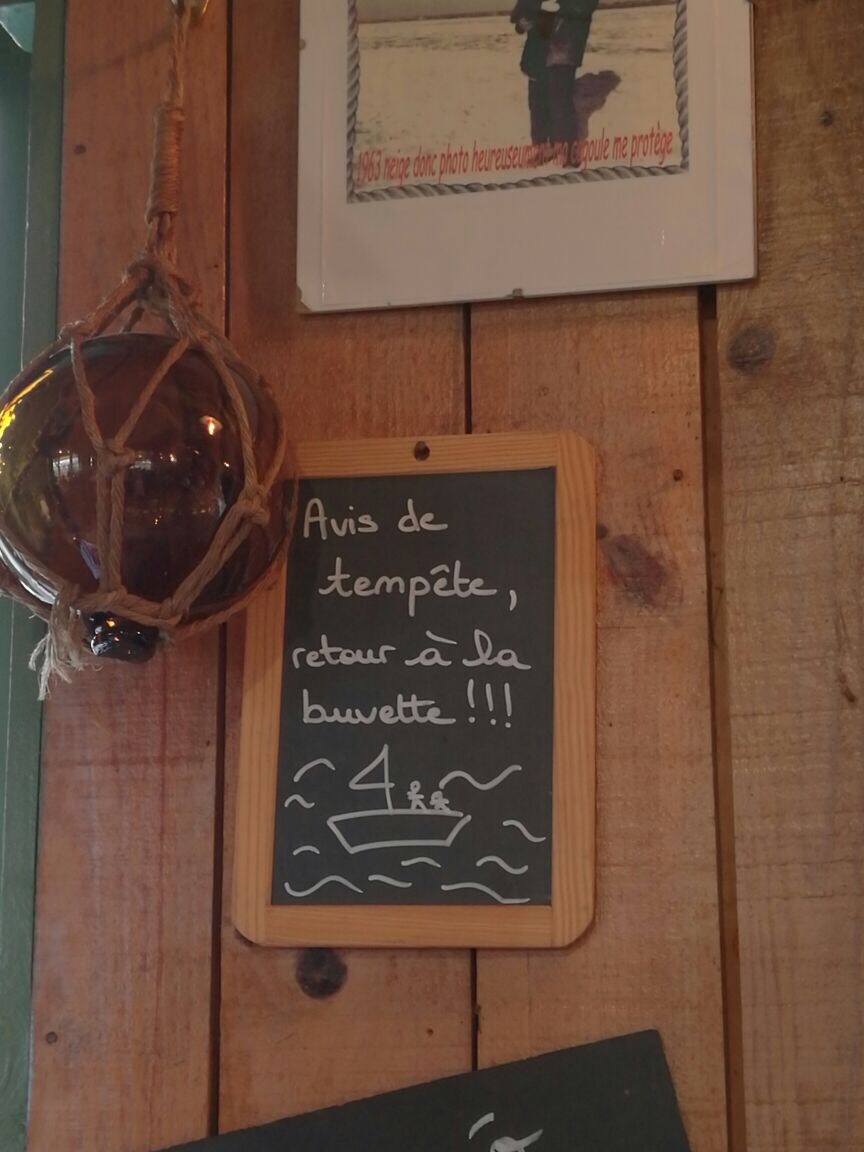 1963 neige donc photo heureusement ma cagoule me protège
Avis de
tempête,
retour à la
buvette !!!